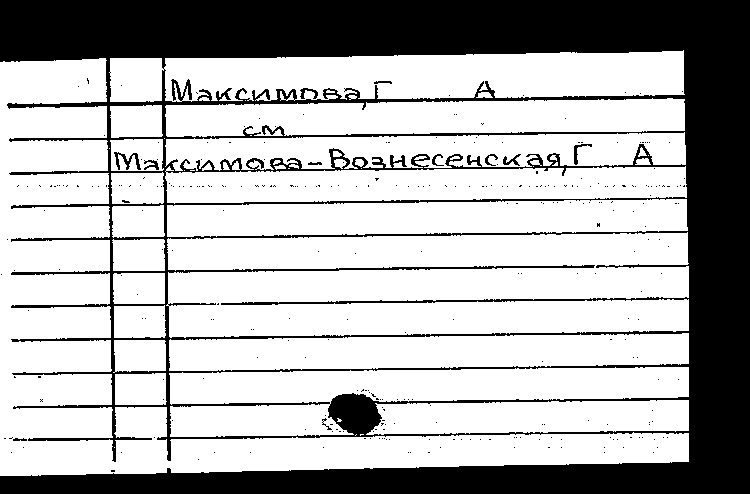 Максимова, Г А
см
Максимова-Вознесенская, Г А